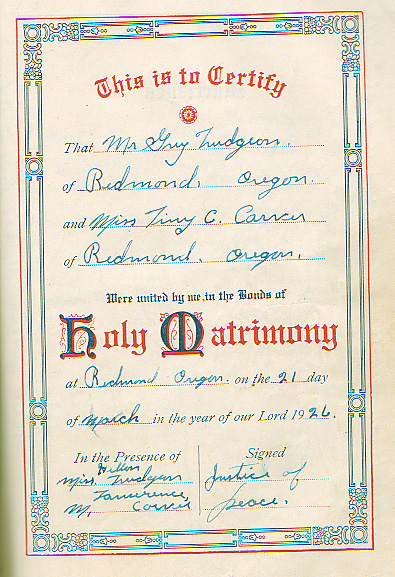 This is to Certify
That Mr Guy Trudgeon.
of Redmond, Oregon.
and Miss Tiny C. Carver
of Redmond, Oregon.
Were united by me in the Bonds of
Holy Matrimony
at Redmond Oregon. on the 21 day
of March in the year of our Lord 1926.
In the Presence of
Signed
Miss. Trudgeon
M. Carver
Justice of
peace.